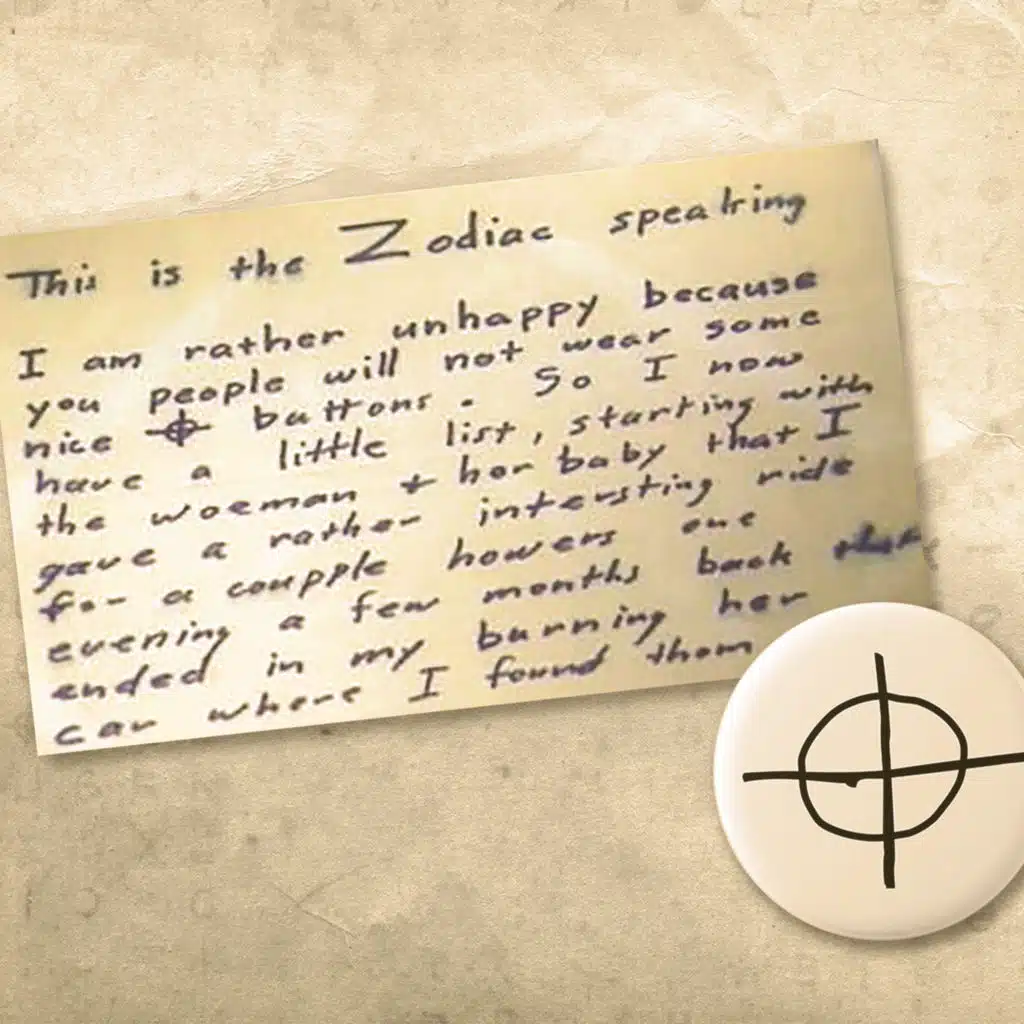 This is the Zodiac speaking
I am rather unhappy because
you people will not wear some
nice ⌖ buttons. So I now
have a little list, starting with
the woeman + her baby that I
gave a rather intersting ride
for a coupple howers one
evening a few months back that
ended in my burning her
car where I found them